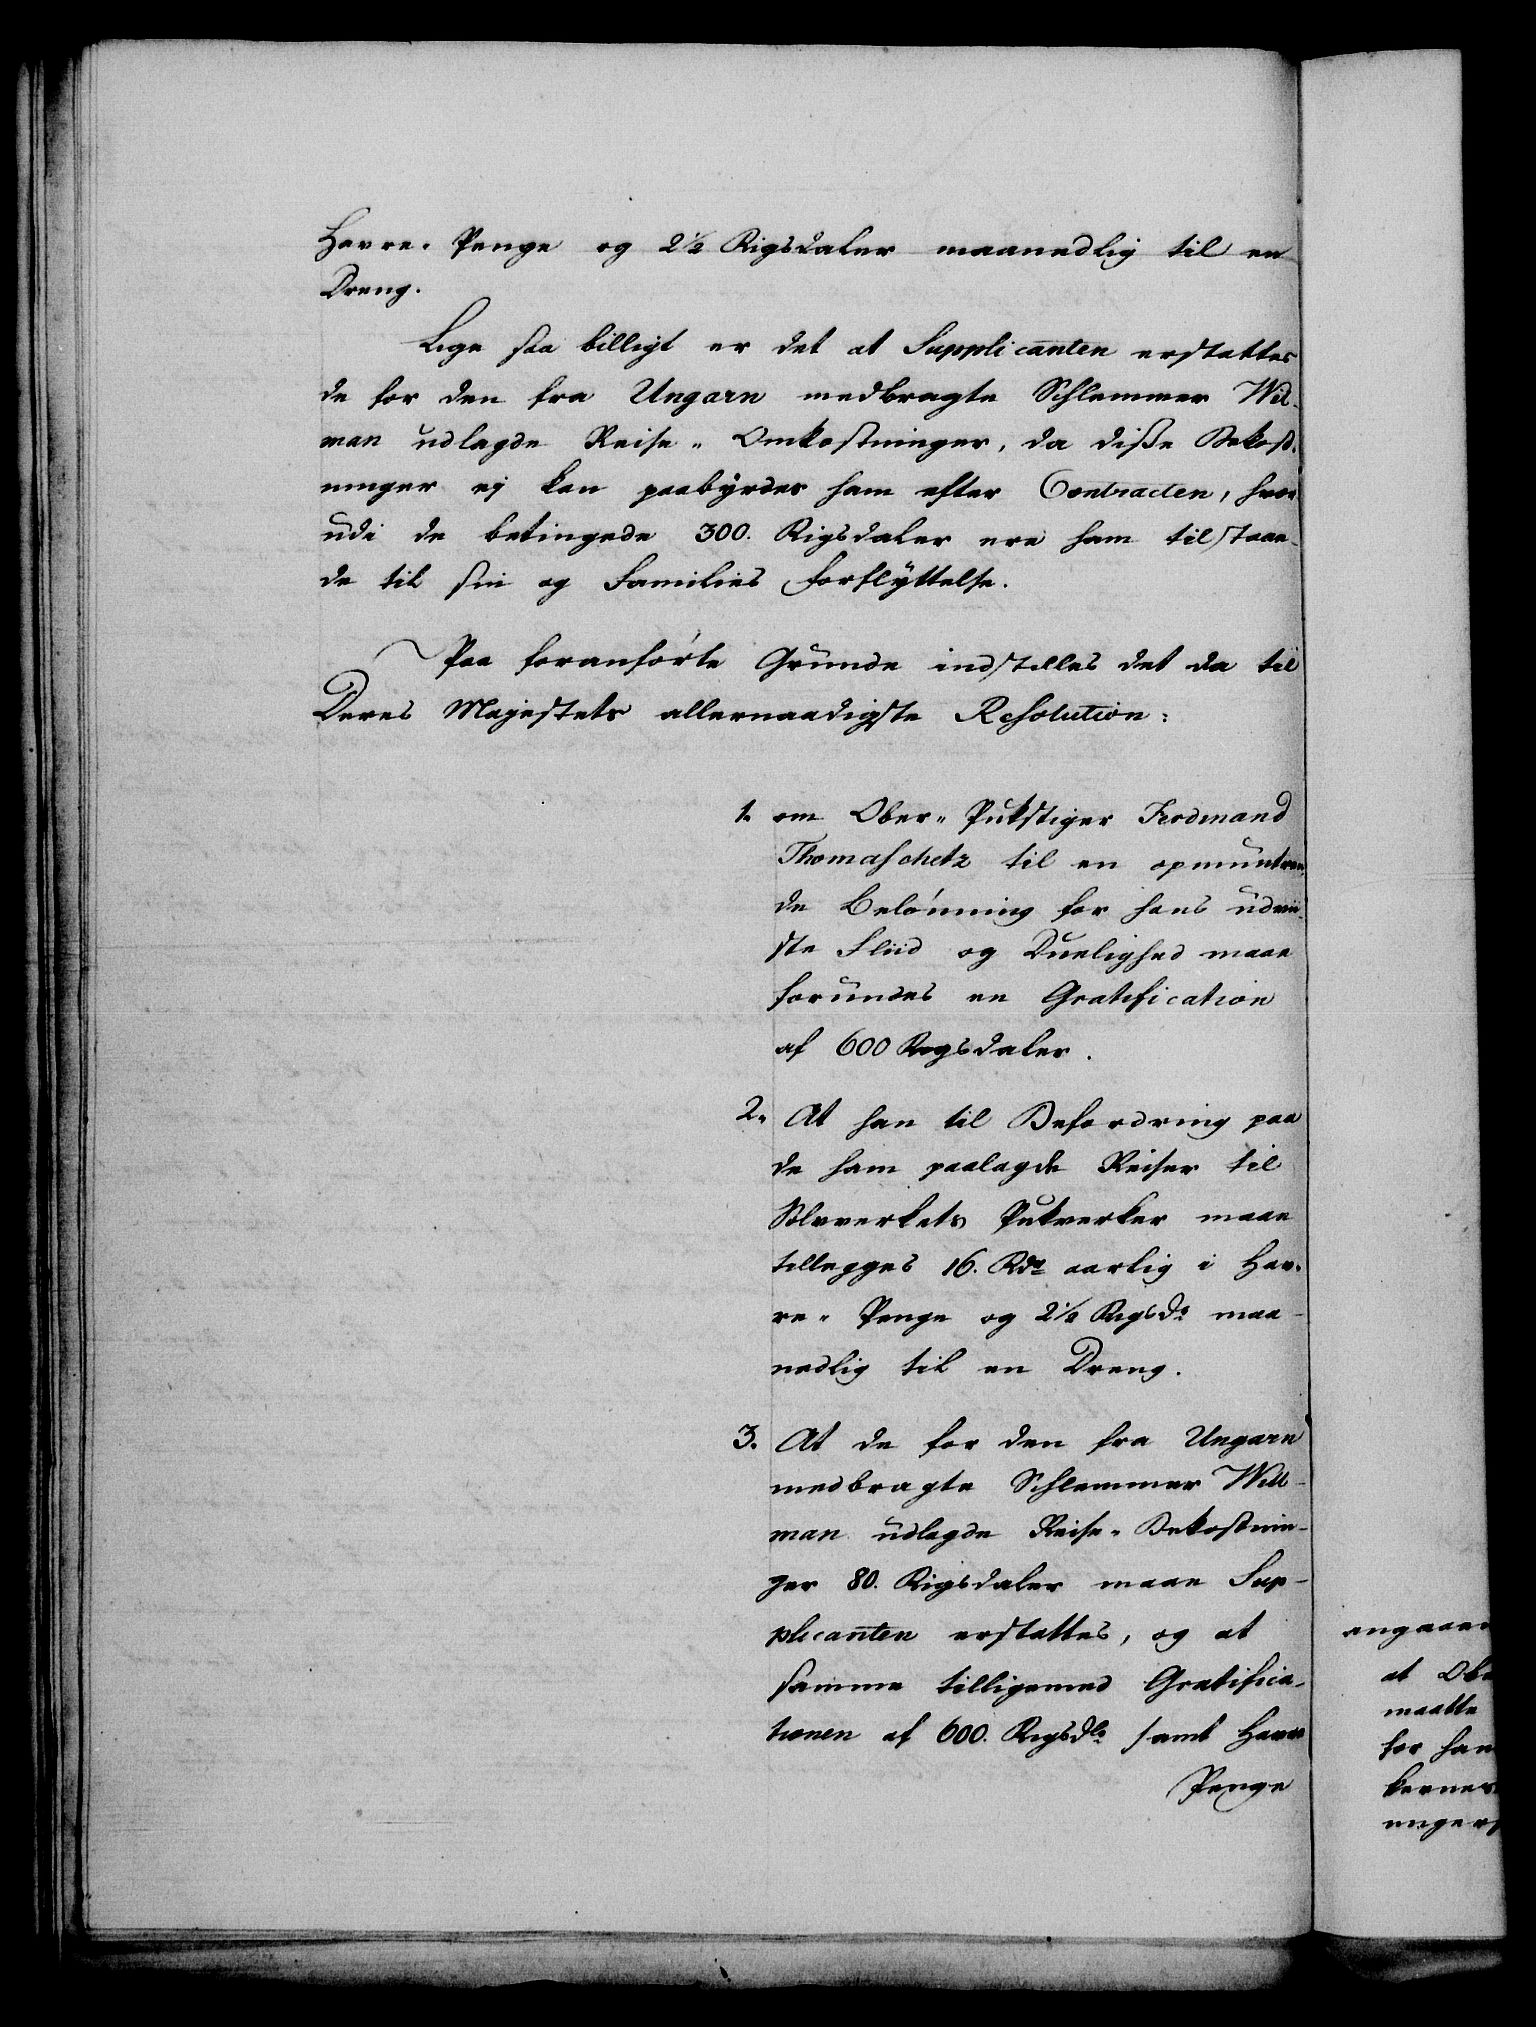 Havre-Penge og 2½ Rigsdaler maanedlig til en
Dreng.
Lige saa billigt er det at Supplicanten erstattes
de for den fra Ungarn medbragte Schlemmer Wil-
man udlagde Reise-Omkostninger, da disse Bekost-
ninger ej kan paabÿrdes ham efter Contracten, hvor
udi de betingede 300. Rigsdaler ere ham tilstaae-
de til sin og Families Forflÿttelse.
Paa foranførte Grunde indstilles det da til
Deres Majestets allernaadigste Resolution:
1. om Ober-Pukstiger Ferdinand
Thomaschetz til en opmuntren-
de Belønning for hans udvii-
ste Fliid og Duelighed maae
forundes en Gratification
af 600 Rigsdaler.
2. At han til Befordring paa
de ham paalagde Reiser til
Sølvverkets Pukverker maae
tillegges 16. Rdr aarlig i Hav-
re-Penge og 2½ Rigsdr maa-
nedlig til en Dreng.
3. At de for den fra Ungarn
medbragte Schlemmer Will-
man udlagde Reise-Bekostnin-
ger 80. Rigsdaler maae Sup-
plicanten erstattes, og at
samme tilligemed Gratifica-
tionen af 600. Rigsdlr samt Havre
Penge
angaaen
at Obe
maatte
for han
kernes
unger